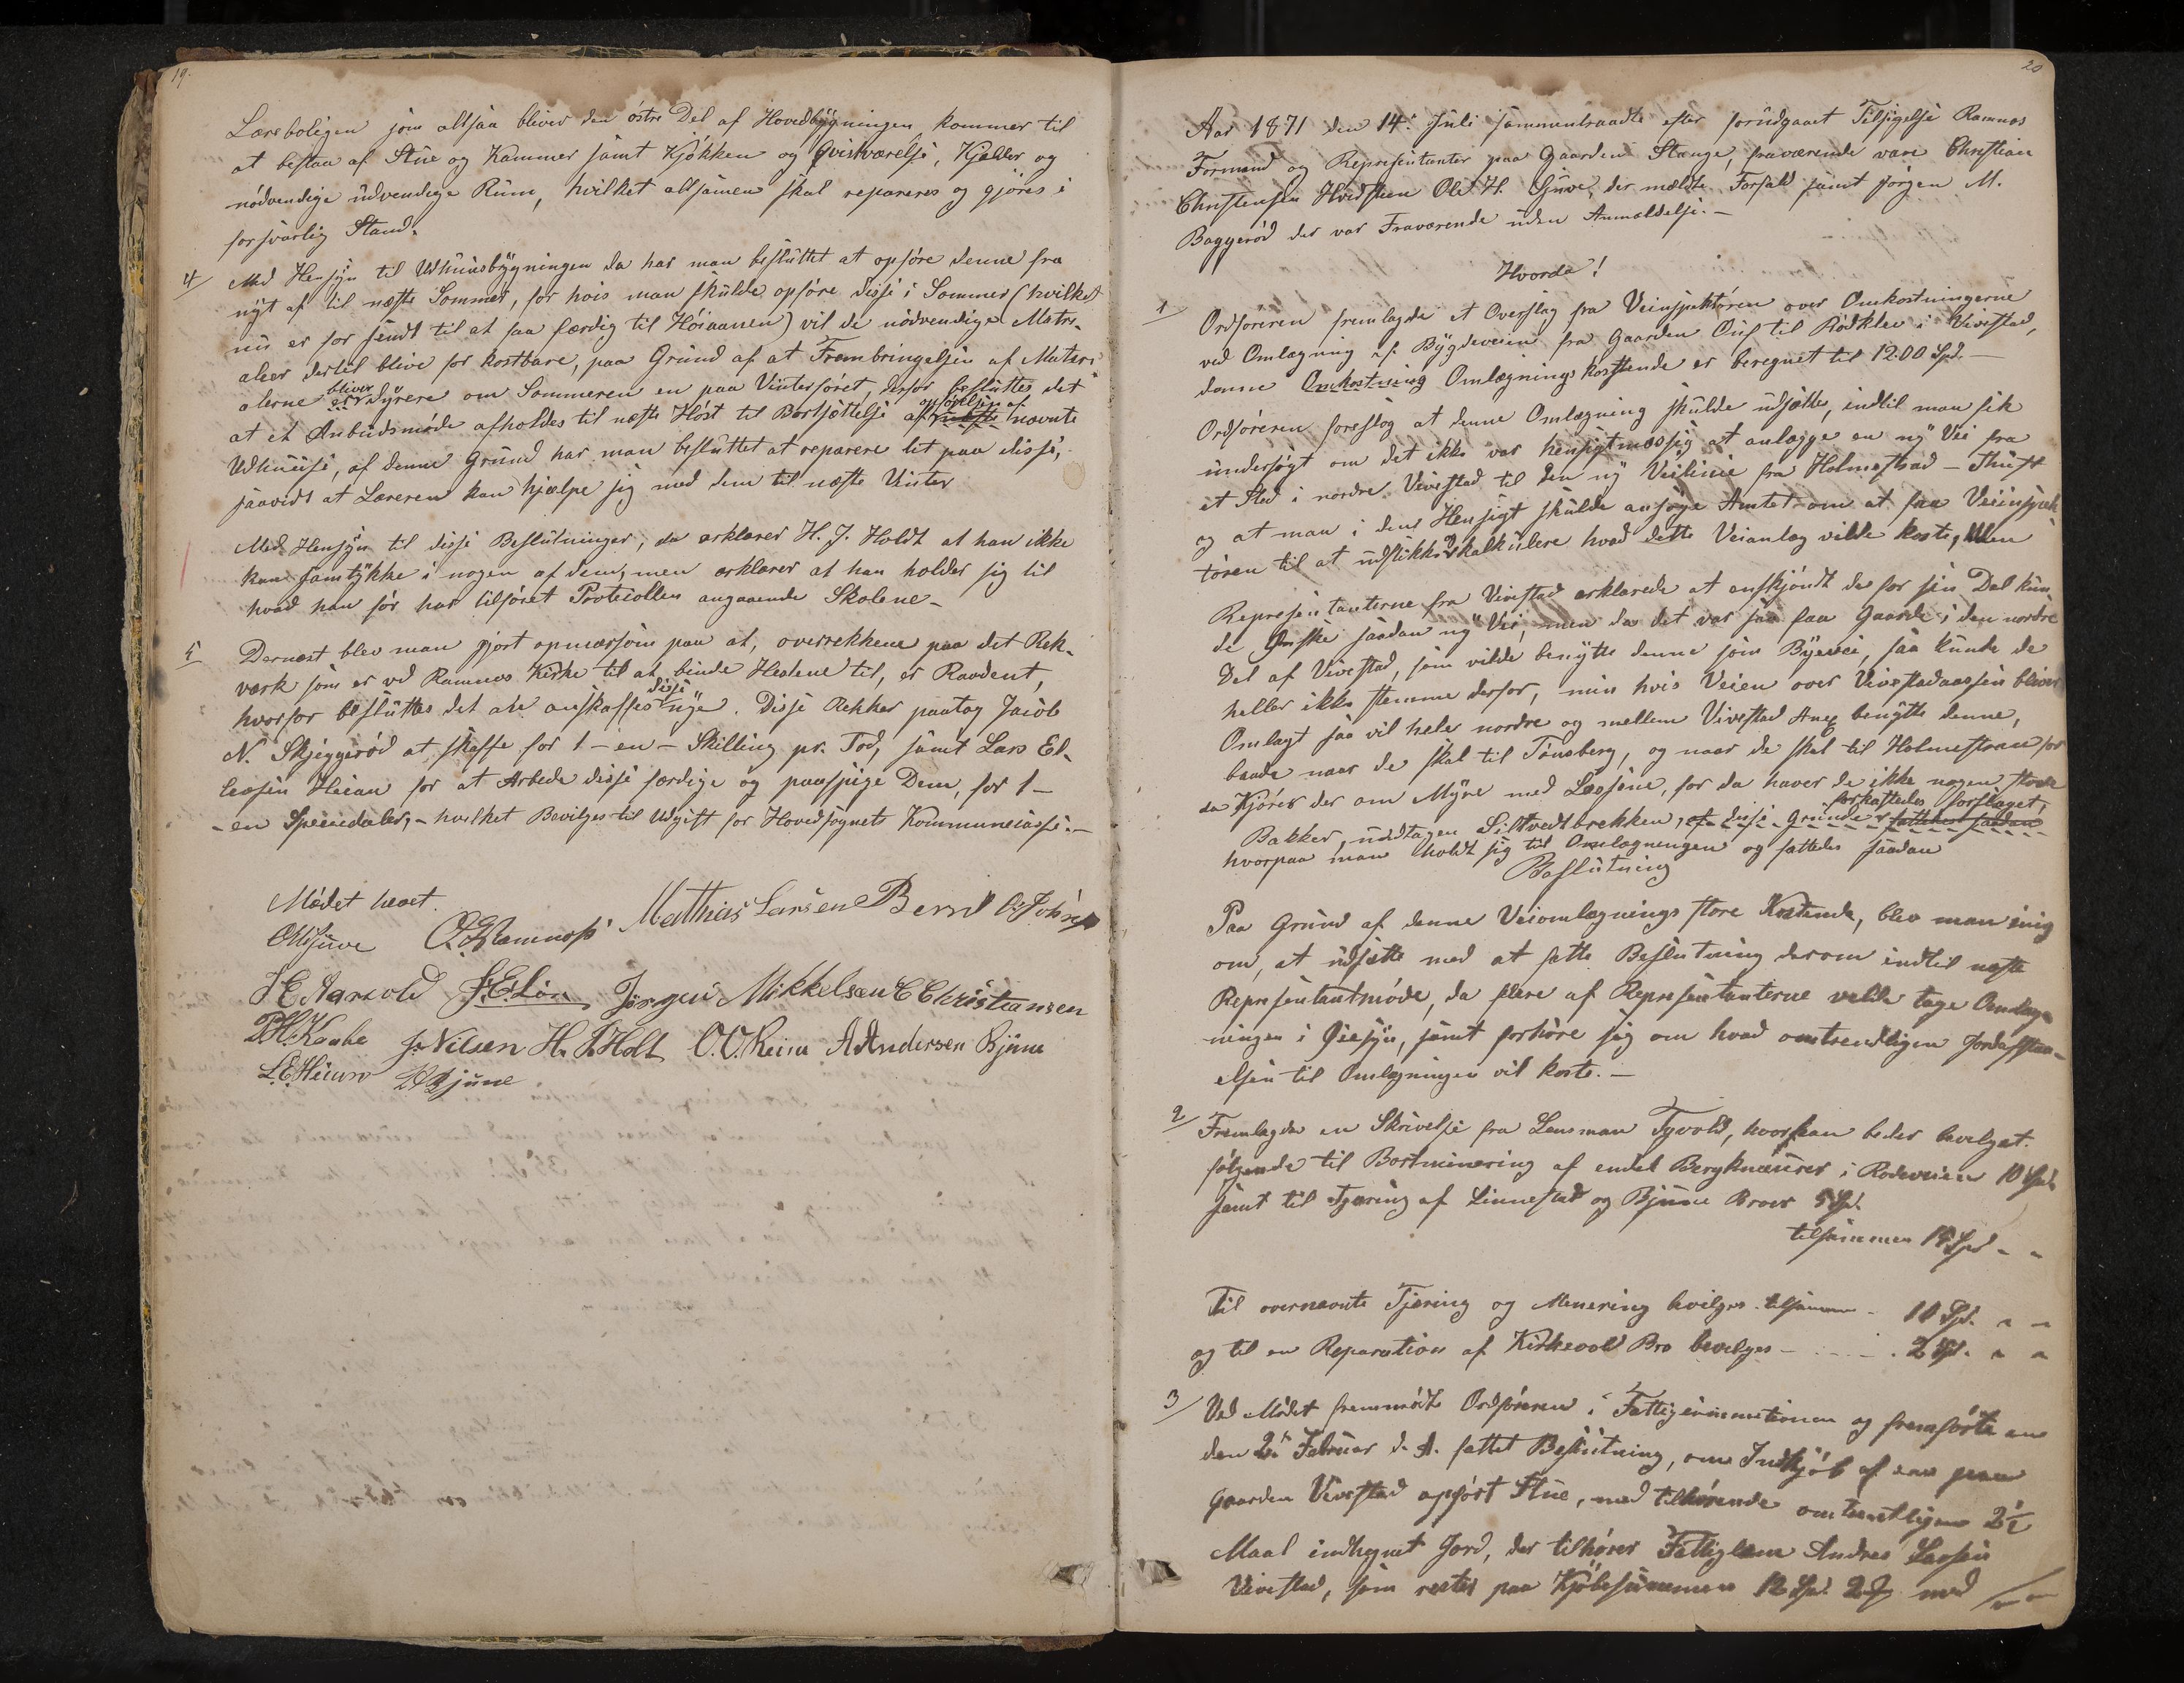 19.
Læreboligen som altsaa bliver den östre Del af Hovedbygningen kommer til
at bestaa af Stue og Kammer samt Kjökken og Qvistværelse, Kjelder og
nödvendige udvendige Rum, hvilket altsamen skal repareres og gjöres i
forsvarlig Stand.
4/ Med Hensyn til Udhuusbygningen da har man besluttet at opföre denne fra
nyt af til næste Sommer, for hvis man skulde opföre disse i Sommer (hvilket
nu er for sendt til at faa færdig til Höiaanen) vil de nödvendige Matri-
aleer dertil blive for kostbare, paa Grund af at Frembringelsen af Materi-
alerne er bliver dyrere om Sommeren en paa Vinterföret, derfor besluttes det
at et Anbudsmöde afholdes til næste Höst til Bortsættelse af opförelsen af nævnte
Udhuuse, af denne Grund har man besluttet at reparere lit paa disse,
saavidt at Læreren kan hjælpe sig med dem til næste Vinter
Med Hensyn til disse Beslutninger, da erklærer H. J. Holdt at han ikke
kan samtykke i nogen af dem, men erklærer at han holder sig til
hvad han för har tilföret Protocollen angaaende Skolene-
5/ Dernæst blev man gjort opmærsom paa at, overrekkene paa det Rek-
værk som er ved Ramnes Kirke til at binde Hestene til, er Raadent,
hvorfor besluttes det at anskaffes disse nye. Disse Rekker paatog Jacob
N. Skjeggeröd at skaffe for 1 - en - Skilling pr. Fod, samt Lars El-
levsen Heian for at Arbede disse færdige og paaspige Dem, for 1 -
- en Speciedaler, - hvilket Bevilges til Udgift for Hovedsognets Kommunecasse. -
Mödet hævet.
OHSjuve Ramness Mathias Larsen Bernt A. Johnsen
H E Aarvold J. E. Lön Jörgen Mikkelsen C Christiansen
PH. Kaabe J. Nilsen H. J Holt O. O. Reine A Andersen Bjune
L. E. Heian Bjune
20
Aar 1871 den 14. Juli sammentraadte efter forudgaaet Tilsigelse Ramnes
Formend og Representanter paa Gaarden Stange, fraværende vare Christian
Christensen Hvidsteen Ole H. Sjuve, der mældte Forfald samt Jörgen M.
Baggeröd der var Fraværende uden Anmældelse. -
Hvorda!
1/ Ordföreren fremlagde et Overslag fra Veiinspektören over Omkostningerne
ved Omlægning af Bygdeveien fra Gaarden Auf til Rödklev i Vivestad,
denne Omkostning Omlægnings kostende er beregnet til 1200 Spd. -
Ordföreren foreslog at denne Omlægning skulde udsættes, indtil man fik
undersögt om det ikke var hensigtmæssig at anlægge en ny Vei fra
et Sted i nordre Vivestad til den ny Veilinie fra Holmestrad - Thuft
og at man i dens Hensigt skulde ansöge Amtet om at faa Veiinspek-
tören til at udstikke og kalkulere hvad dette Veianlæg vilde koste, Men
Representanterne fra Vivestad erklærede at enskjöndt de for sin Del kun-
de Önske saadan ny Vei, men da det var saa faa Gaarde i den nordre
Del af Vivestad, som vilde benytte denne som Byevei, saa kunde de
heller ikke stemme derfor, min hvis Veien over Vivestadaassen bliver
Omlagt saa vil hele nordre og mellem Vivestad Anex benytte denne,
baade naar de skal til Tönsberg, og naar de skal til Holmestran for
da Kjöres der om Myre med Læssene, for da haver de ikke nogen store
Bakker, undtagen Siltvedtbrekken, af disse Grunde forkastedes forslaget, fattedes saadan
hvorpaa man holdt sig til Omlægningen og fattedes saadan
Beslutning
Paa Grund af denne Veiomlægnings store Kostende, blev man enig
om, at udsætte med at fatte Beslutning derom indtil næste
Representantmöde, da flere af Representanterne vilde tage Omlæg-
ningen i Öiesyn, samt forhöre sig om hvad omtrendtligen Jordafstaa-
elsen til Omlægningen vil koste. -
2/ Fremlagdes en Skrivelse fra Lensman Tyvold, hvori han beder bevilget
fölgende til Bortminering af endel Bergknauser i Rodeveien 10 Spd.
samt til Tjæring af Linnestad og Bjune Broer 5 Spd.
tilsammen 15 Spd " "
Til overnævnte Tjæring og Menering bevilges tilsammen 10 Spd. " "
og til en Reparation af Kirkevold Bro bevilges - . . . - . 2 Spd. " "
3/ Ved Mödet fremmödte Ordföreren i Fattigcommisionen og fremförte en
den 2n Februar d. A. fattet Beslutning, om Indkjöb af en paa
Gaarden Vivestad opfört Stue, med tilhörende omtrentligen 2½
Maal indhegnet Jord, der tilhörer Fattiglem Andres Larsen
Vivestad, som rester paa Kjöbesummen 12 Spd. 2 med